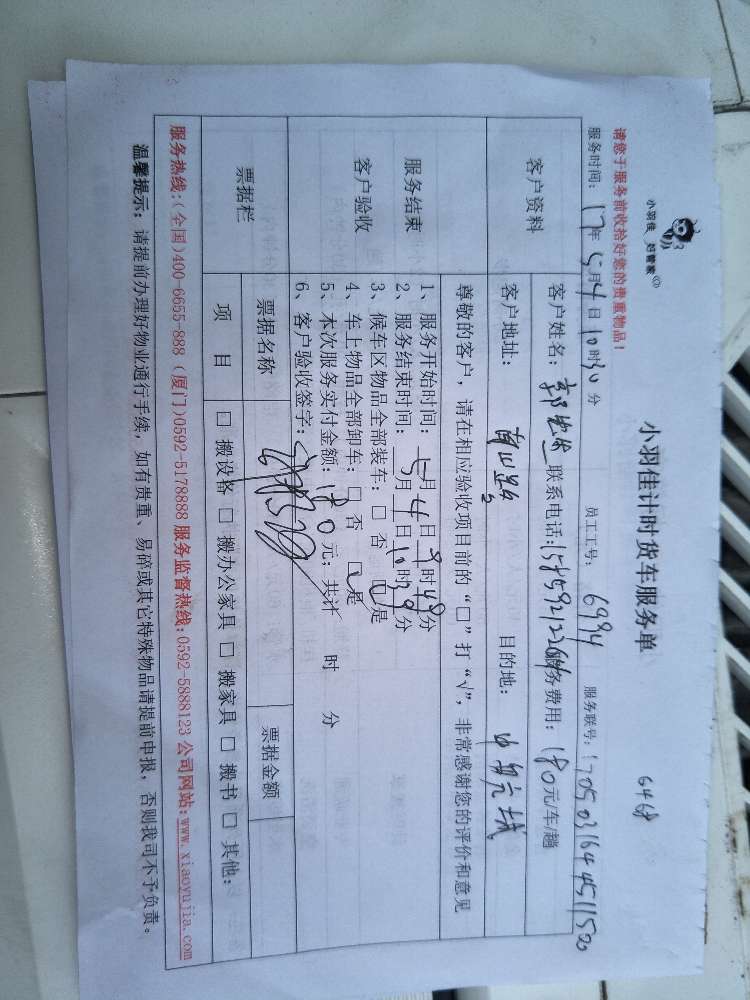 小羽佳 好管家
小羽佳计时货车服务单
6468
请您于服务前收拾好您的贵重物品！
服务时间：17年5月4日10时30分 员工工号：6994 服务联号：
客户资料
客户姓名： 联系电话： 服务费用：180元/车/趟
客户地址： 目的地：
服务结束
客户验收
尊敬的客户，请在相应验收项目前的“□”打“√”，非常感谢您的评价和意见
1、服务开始时间：5月4日9时49分
2、服务结束时间：5月4日10时39分
3、候车区物品全部装车：□ 否 □是
4、车上物品全部卸车：□ 否 □是
5、本次服务实付金额：180元；共计 时 分
6、客户验收签字：
票据栏
票据名称 票据金额
项 目 □ 搬设备 □ 搬办公家具 □ 搬家具 □ 搬书 □ 其他：
服务热线：(全国)400-6655-888 (厦门)0592-5178888 服务监督热线：0592-5888123 公司网站：www.xiaoyujia.com
温馨提示：请提前办理好物业通行手续，如有贵重、易碎或其它特殊物品请提前申报，否则我司不予负责。